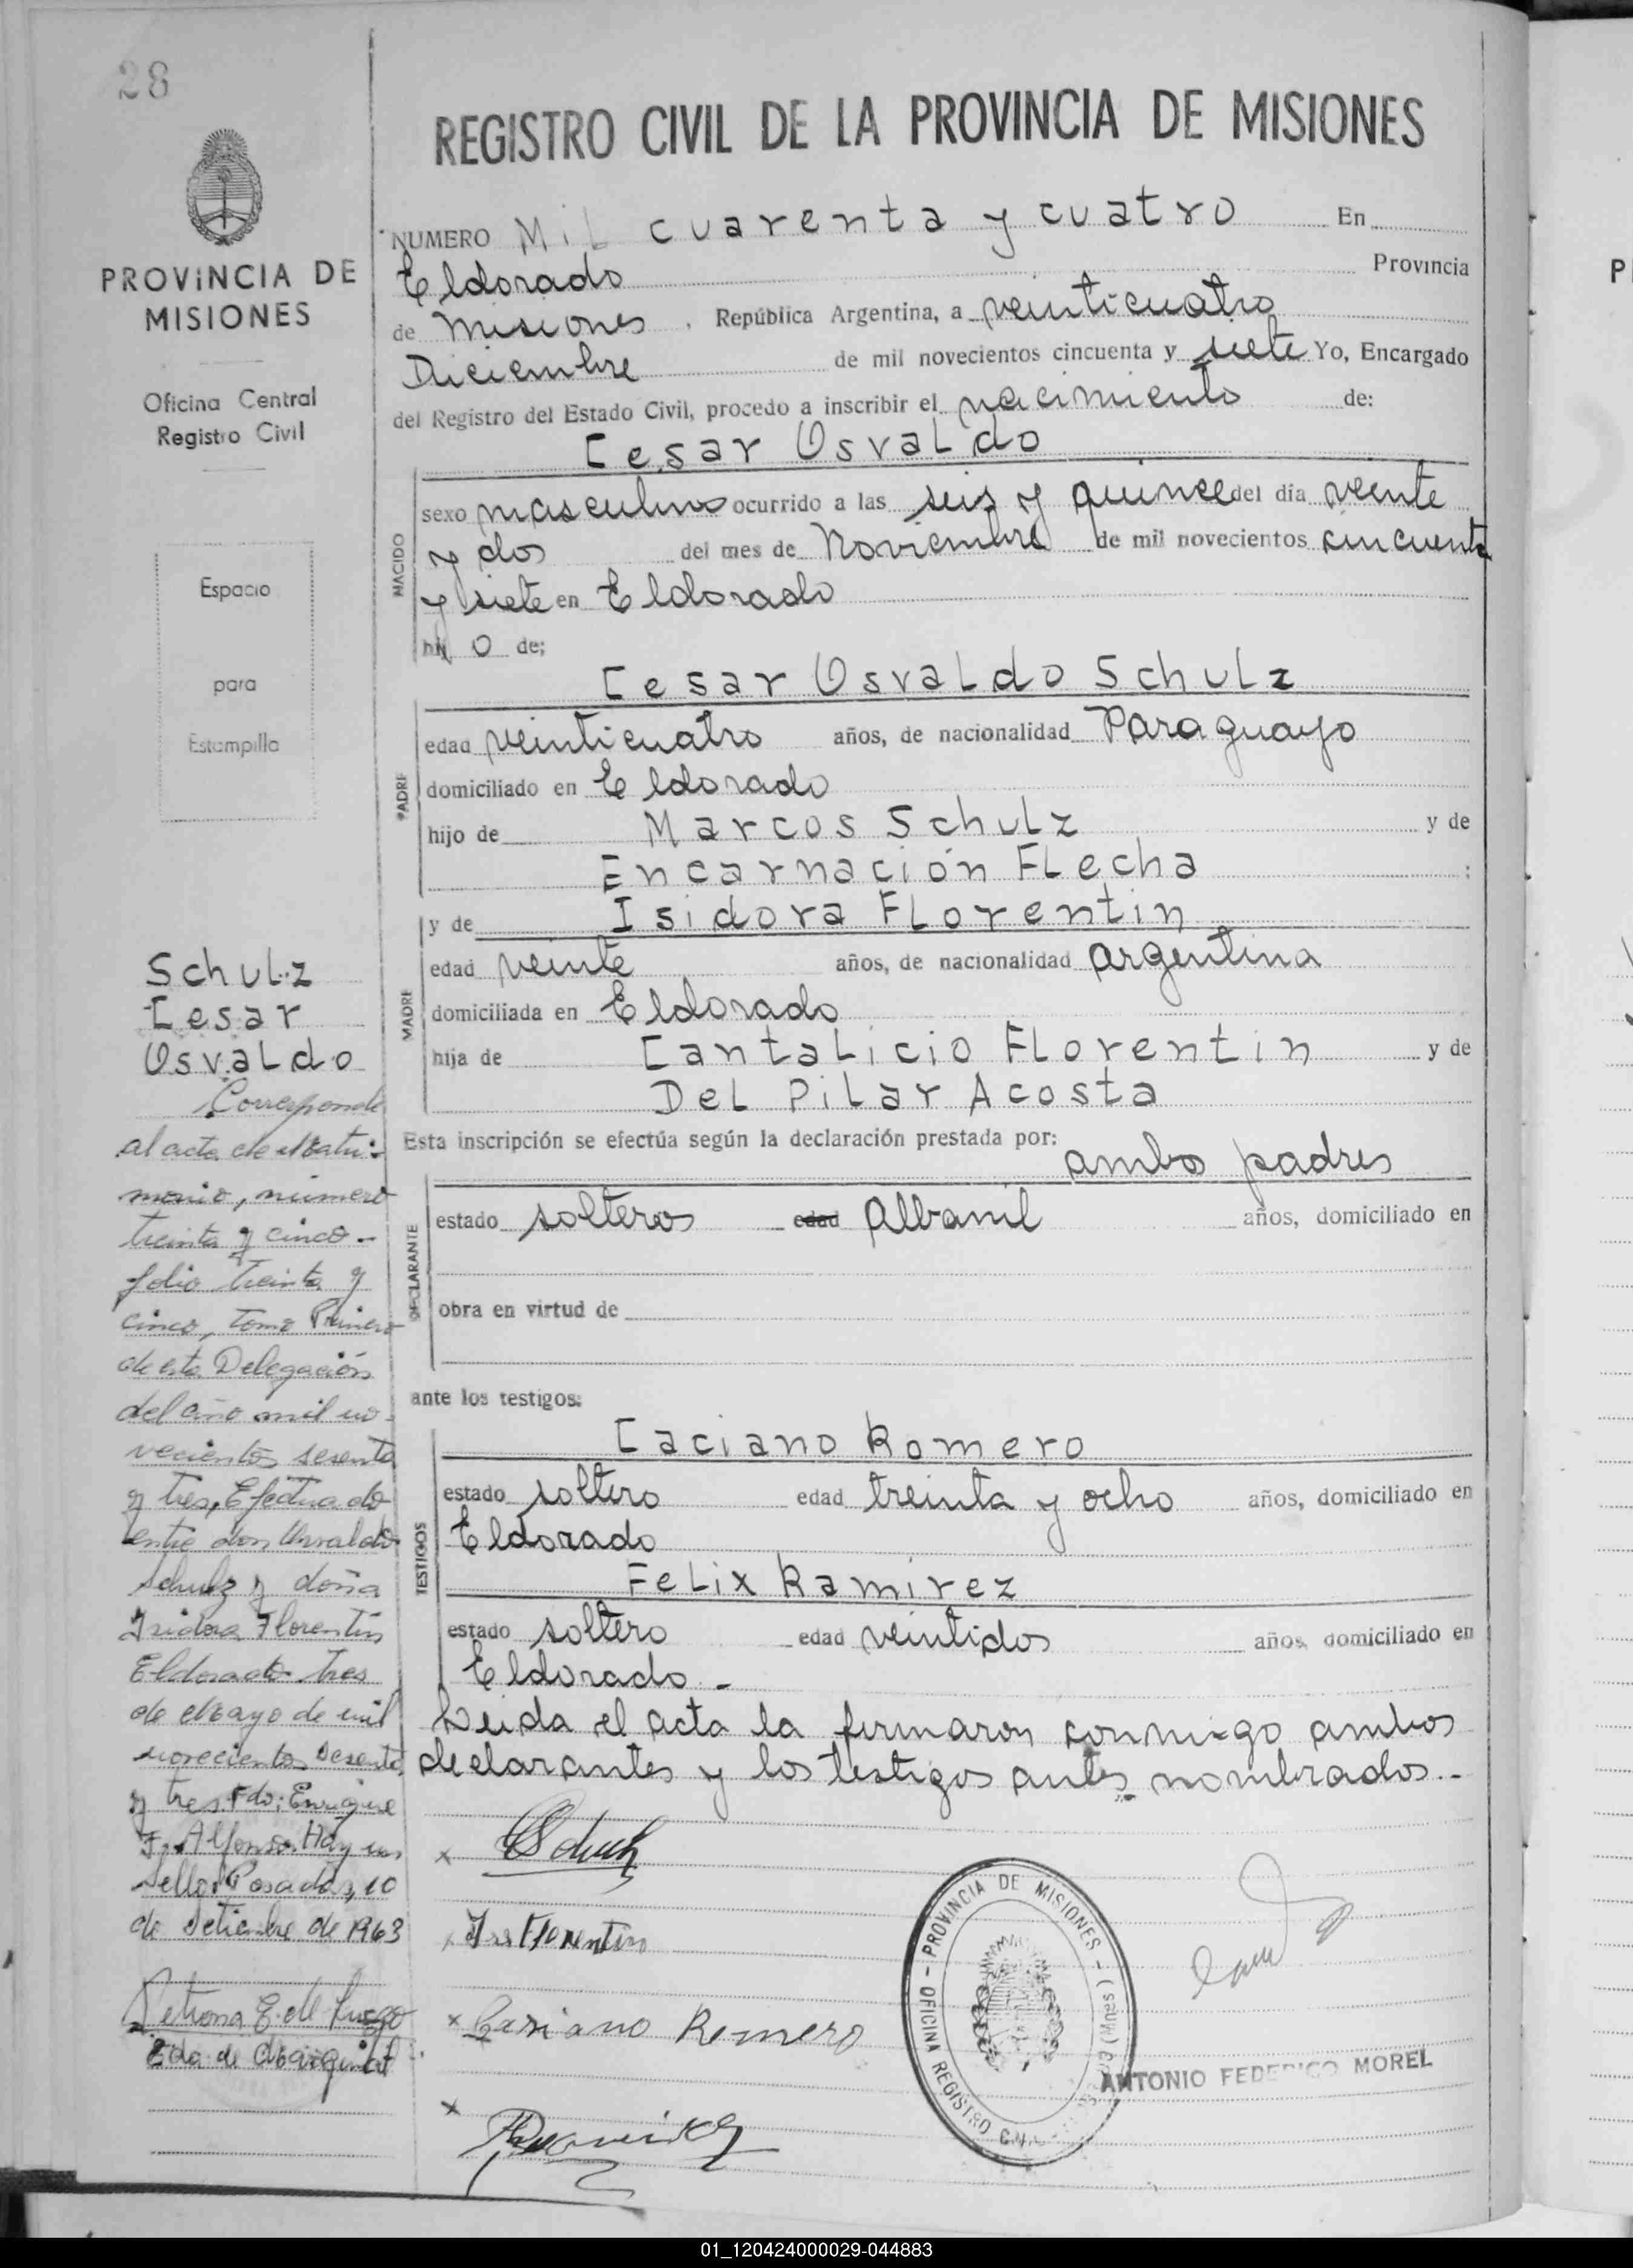 28
PROVINCIA DE
MISIONES
Oficina Central
Registro Civil
Espacio
para
Estampilla
REGISTRO CIVIL DE LA PROVINCIA DE MISIONES
NUMERO Mil cuarenta y cuatro En
Eldorado Provincia
de Misiones, República Argentina, a veinticuatro
Diciembre de mil novecientos cincuenta y siete Yo, Encargado
del Registro del Estado Civil, procedo a inscribir el nacimiento de:
Cesar Osvaldo
NACIDO
sexo masculino ocurrido a las seis y quince del día veinte
y dos del mes de Noviembre de mil novecientos cincuenta
y siete en Eldorado
hijo de;
Cesar Osvaldo Schulz
PADRE
edad veinticuatro años, de nacionalidad Paraguayo
domiciliado en Eldorado
hijo de Marcos Schulz y de
Encarnación Flecha ;
y de Isidora Florentin
MADRE
edad veinte años, de nacionalidad argentina
domiciliada en Eldorado
hija de Cantalicio Florentin y de
Del Pilar Acosta
Esta inscripción se efectúa según la declaración prestada por:
ambo padres
DECLARANTE
estado solteros edad Albanil años, domiciliado en
obra en virtud de
ante los testigos:
Caciano Romero
TESTIGOS
estado soltero edad treinta y ocho años, domiciliado en
Eldorado
Felix Ramirez
estado soltero edad veintidos años, domiciliado en
Eldorado.-
Leida el acta la firmaron conmigo ambos
declarantes y los testigos antes nombrados.-
Schulz
Cesar
Osvaldo
Corresponde
al acta de Matri-
monio, número
treinta y cinco-
folio treinta y
cinco, tomo Primero
de esta Delegación
del año mil no-
vecientos sesenta
y tres, Efectuado
entre don Osvaldo
Schulz y doña
Isidora Florentin
Eldorado tres
de Mayo de mil
novecientos sesenta
y tres. Fdo: Enrique
F. Alfonso. Hay un
sello. Posadas, 10
de Setiembre de 1963
Petrona E. de Luego
Eda. de Marginal
x Schulz
x Isi Florentin
x Casiano Romero
x Ramirez
OFICINA REGISTRO CIVIL - PROVINCIA DE MISIONES - (Mnes)
ANTONIO FEDERICO MOREL
01_120424000029-044883